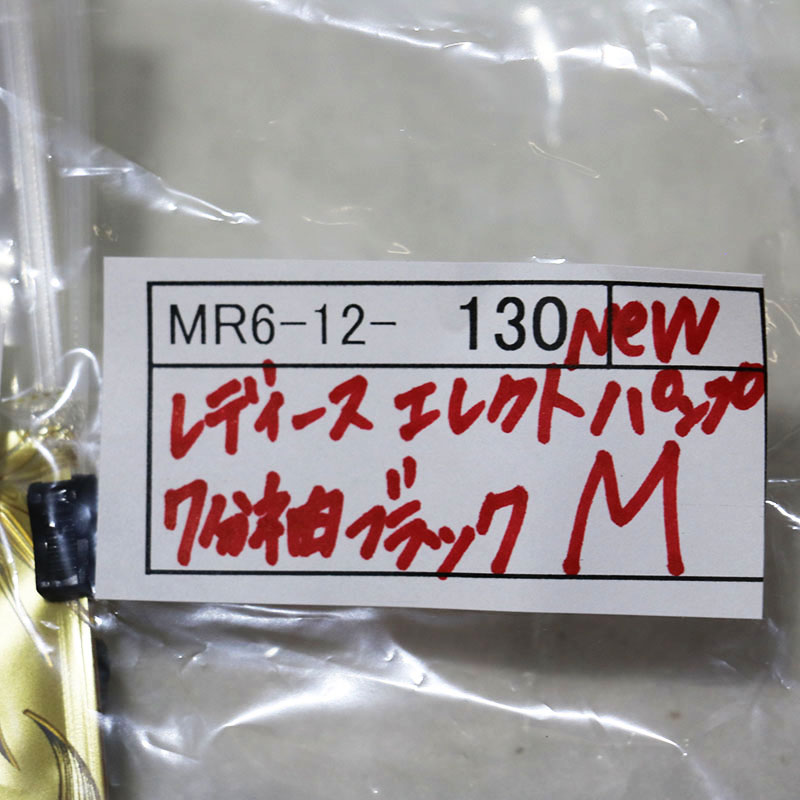 MR6-12- 130 New
レディース エレクト パンプ
7分袖 ブラック M